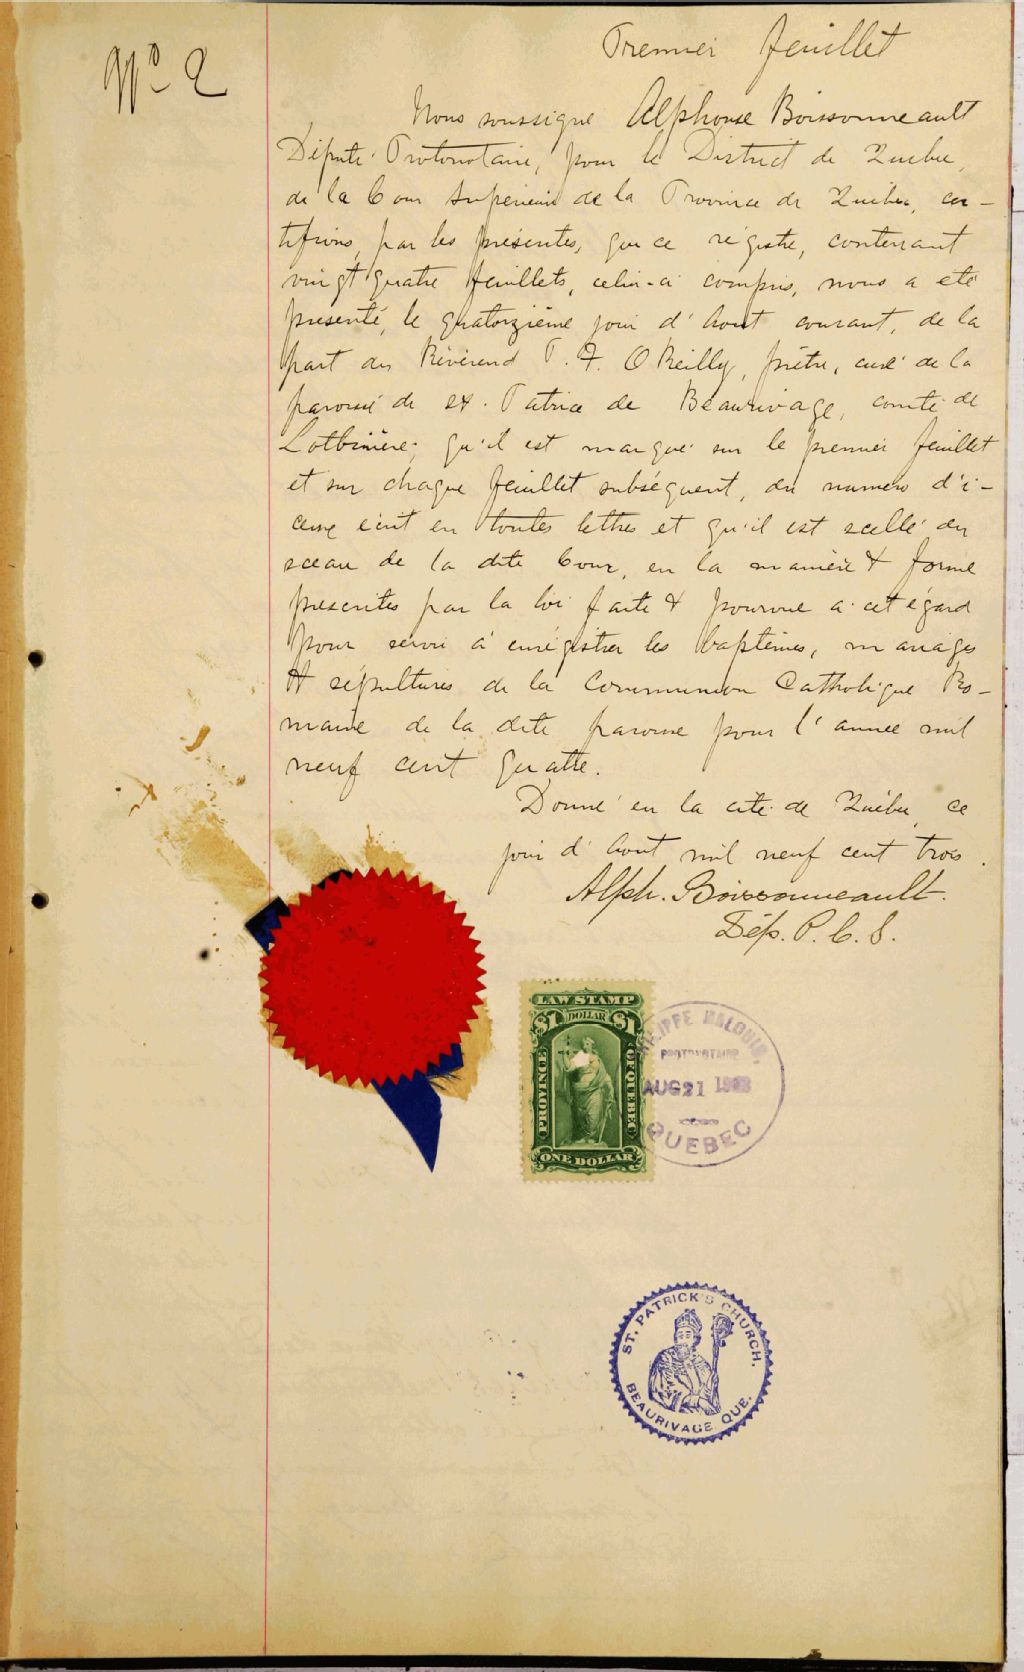 No 2
Premier feuillet
Nous soussigné Alphonse Boissonneault
Député Protonotaire, pour le District de Québec,
de la Cour Supérieure de la Province de Québec, cer-
tifions, par les présentes, que ce régistre, contenant
vingt quatre feuillets, celui-ci compris, nous a été
présenté, le quatorzième jour d'Aout courant, de la
part du Révérend P. F. O'Reilly, prêtre, curé de la
paroisse de St. Patrice de Beaurivage, comté de
Lotbinière; qu'il est marqué sur le premier feuillet
et sur chaque feuillet subséquent, du numéro d'i-
celui écrit en toutes lettres et qu'il est scellé du
sceau de la dite Cour, en la manière & forme
prescrites par la loi faite & pourvue à cet égard
pour servir à enrégistrer les baptêmes, mariages
& sépultures de la Communion Catholique Ro-
maine de la dite paroisse pour l'année mil
neuf cent quatre.
Donné en la cité de Québec, ce
jour d'Aout mil neuf cent trois.
Alph. Boissonneault.
Dép. P. C. S.
LAW STAMP
$1 DOLLAR $1
PROVINCE OF QUEBEC
ONE DOLLAR
MALOUIN,
PROTONOTAIRE
AUG 21 1903
QUEBEC
ST. PATRICK'S CHURCH,
BEAURIVAGE QUE.